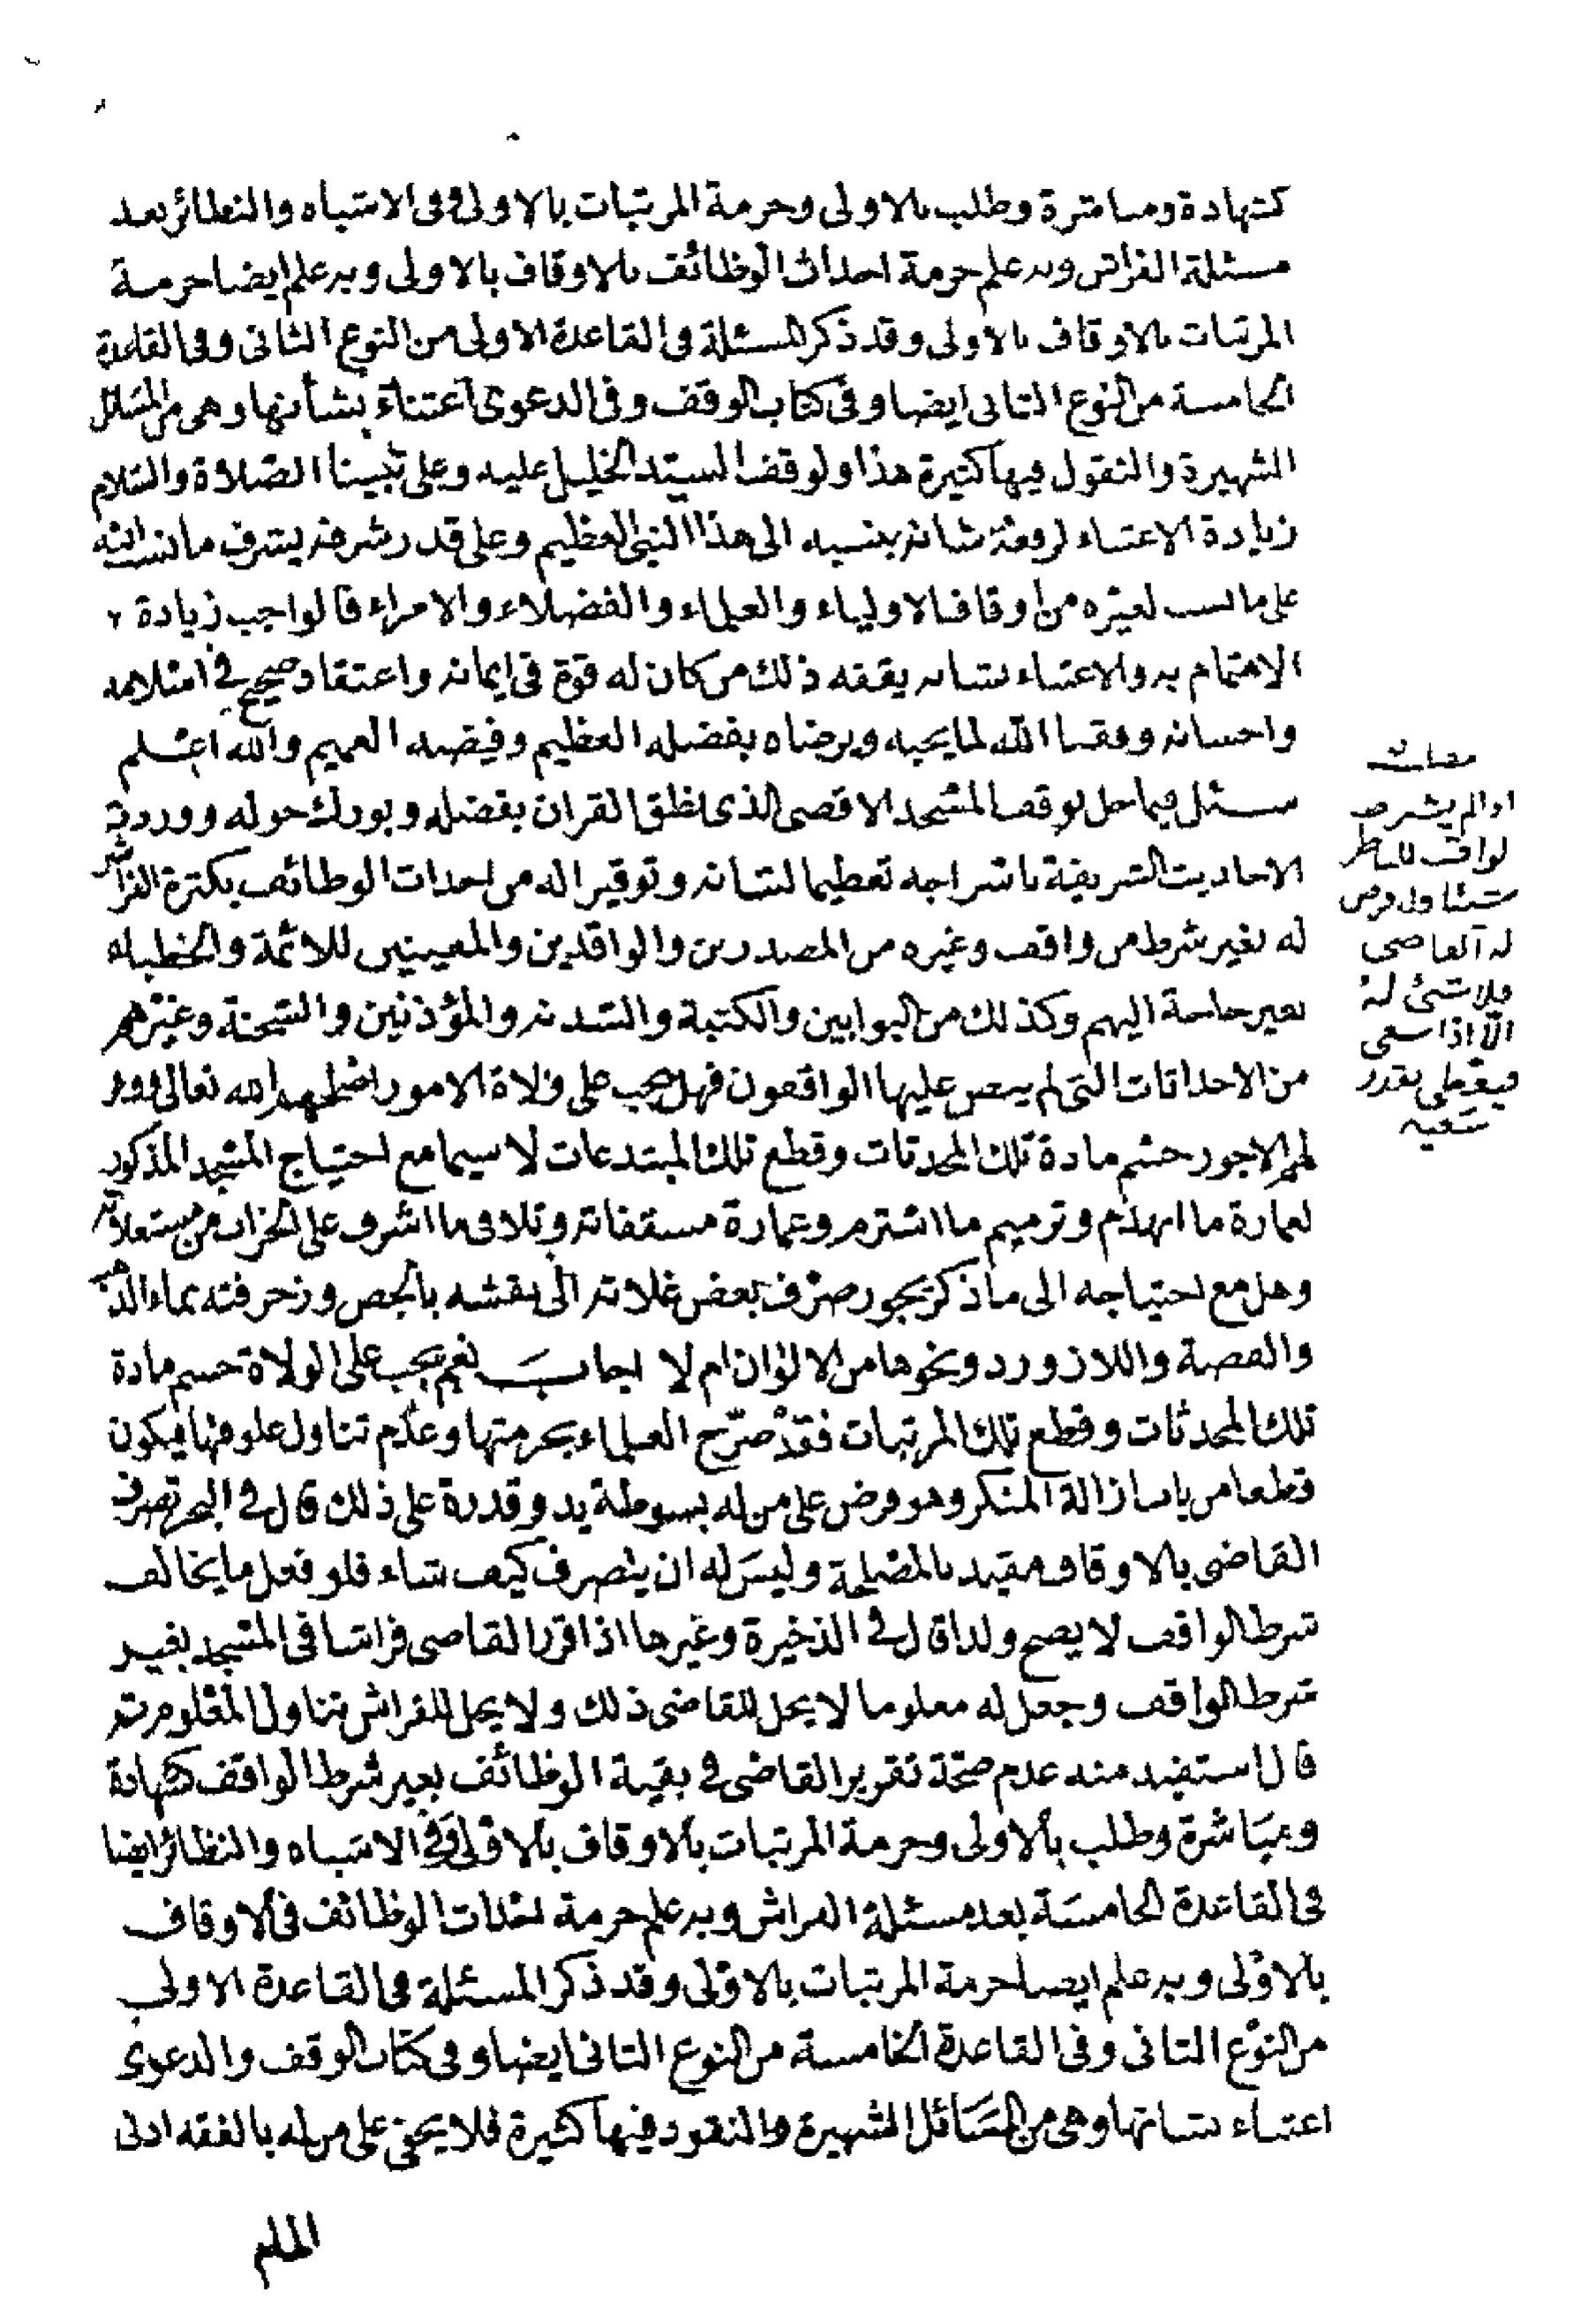 كشهادة ومباشرة وطلب بالاولى وحرمة المرتبات بالاولى وفى الاشباه والنظائر بعد
مسئلة الفراش وبه علم حرمة احداث الوظائف بالاوقاف بالاولى وبه علم ايضا حرمة
المرتبات بالاوقاف بالاولى وقد ذكر المسئلة فى القاعدة الاولى من النوع الثانى وفى القاعدة
الخامسة من النوع الثانى ايضا وفى كتاب الوقف وفى الدعوى اعتناء بشأنها وهى من المسائل
الشهيرة والنقول فيها كثيرة هذا ولوقف السيد الخليل عليه وعلى نبينا الصلاة والسلام
زيادة الاعتناء لرفعة شانه بنسبه الى هذا النبى العظيم وعلى قدر شرفه يشرف ما نسب اليه
على ما نسب لغيره من اوقاف الاولياء والعلماء والفضلاء والامراء فالواجب زيادة
الاهتمام به والاعتناء بشانه يفقه ذلك من كان له قوة فى ايمانه واعتقاد صحيح فى اسلامه
واحسانه وفقنا الله لما يحبه ويرضاه بفضله العظيم وفيضه العميم والله اعلم
سئل فيما حل بوقف المسجد الاقصى الذى نطق القران بفضله وبورك حوله ووردت
الاحاديث الشريفة باسراجه تعظيما لشانه وتوقيرا له من احداث الوظائف بكثرة الفراش
له بغير شرط من واقف وغيره من المصدرين والواقدين والمعينين للائمة والخطباء
بغير حاجة اليهم وكذلك من البوابين والكتبة والسدنه والمؤذنين والشحنة وغيرهم
من الاحداثات التى لم ينص عليها الواقفون فهل يجب على ولاة الامور الله تعالى ووفر
لهم الاجور حسم مادة تلك المحدثات وقطع تلك المبتدعات لا سيما مع احتياج المسجد المذكور
لعمارة ما انهدم وترميم ما استرم وعمارة مسقفاته وتلافى ما اشرف على الخراب من مستغلاته
وهل مع احتياجه الى ما ذكر يجوز صرف بعض غلاته الى نقشه بالجص وزخرفته بماء الذهب
والفضة واللازورد ونحوها من الالوان ام لا اجاب نعم يجب على الولاة حسم مادة
تلك المحدثات وقطع تلك المرتبات فقد صرّح العلماء بحرمتها وعدم تناول علوفها فيكون
قطعا من باب ازالة المنكر وهو فرض على من له بسوطة يد وقدرة على ذلك قال فى البحر تصرف
القاضى بالاوقاف مقيد بالمصلحة وليس له ان يتصرف كيف شاء فلو فعل ما يخالف
شرط الواقف لا يصح ولذا قال فى الذخيرة وغيرها اذا قرر القاضى فراشا فى المسجد بغير
شرط الواقف وجعل له معلوما لا يحل للقاضى ذلك ولا يحل للفراش تناول المعلوم ثم
قال استفيد منه عدم صحّة تقرير القاضى فى بقية الوظائف بغير شرط الواقف كشهادة
ومباشرة وطلب بالاولى وحرمة المرتبات بالاوقاف بالاولى وفى الاشباه والنظائر ايضا
فى القاعدة الخامسة بعد مسئلة الفراش وبه علم حرمة احداث الوظائف فى الاوقاف
بالاولى وبه علم ايضا حرمة المرتبات بالاولى وقد ذكر المسئلة فى القاعدة الاولى
من النوع الثانى وفى القاعدة الخامسة من النوع الثانى ايضا وفى كتاب الوقف والدعوى
اعتناء بشانها وهى من المسائل الشهيرة والنقود فيها كثيرة فلا يخفى على من له بالفقه ادنى
المام
مطلب
اذا لم يشرط
الواقف للناظر
شيئا ولم يفرض
له القاضى
فلا شئ له
الا اذا سعى
فيعطى بقدر
سعيه